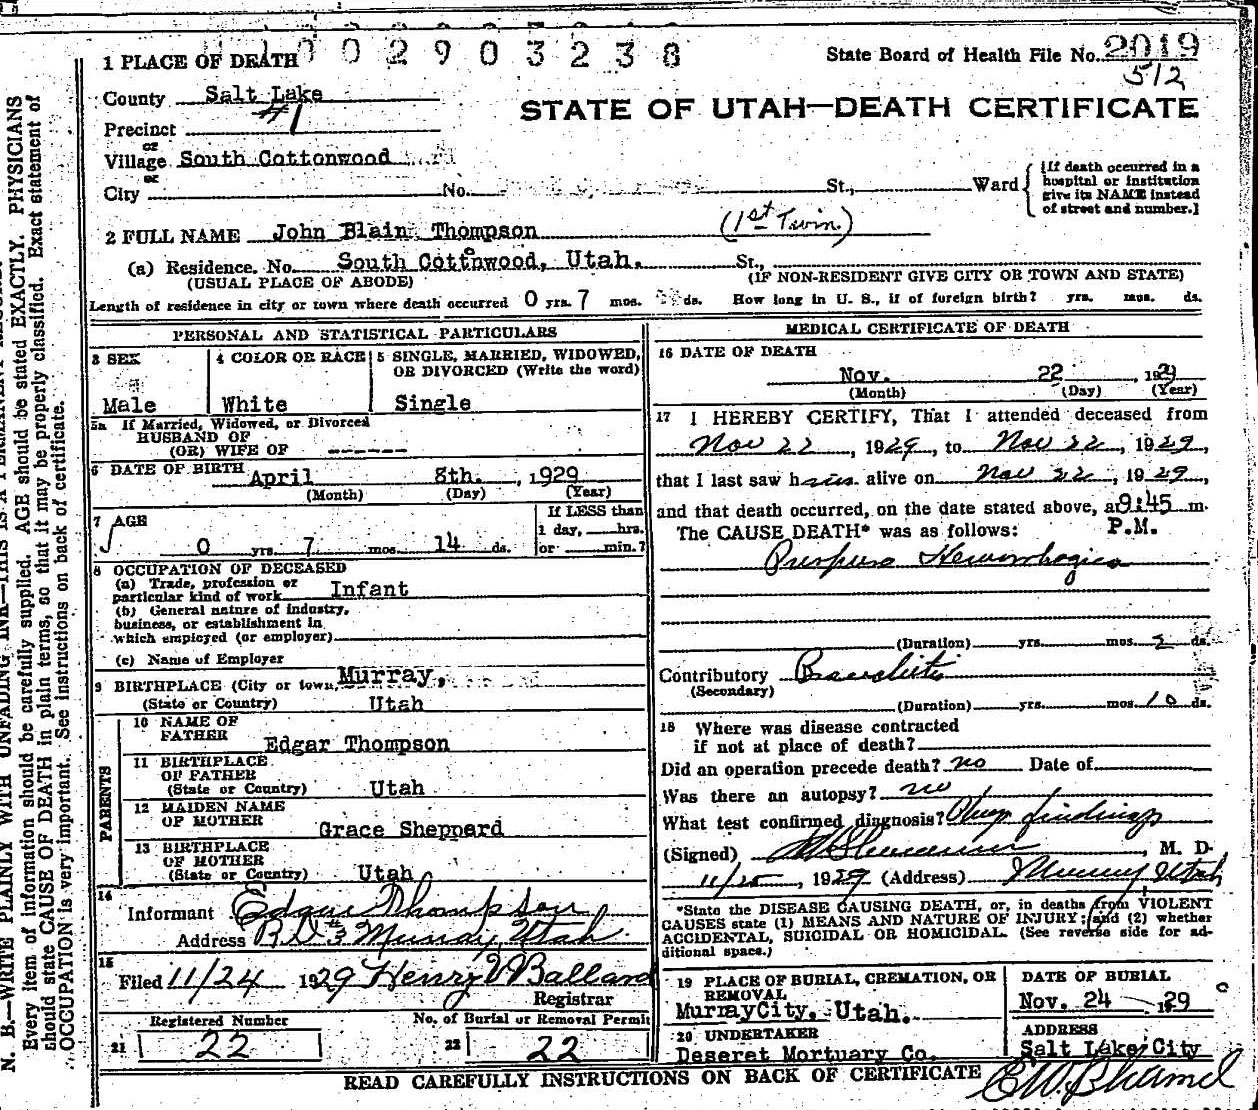 1 PLACE OF DEATH 0 0 2 9 0 3 2 3 8
State Board of Health File No. 2019
512
County Salt Lake
STATE OF UTAH—DEATH CERTIFICATE
Precinct #1
or
Village South Cottonwood
or
City No. St., Ward
[If death occurred in a hospital or institution give its NAME instead of street and number.]
2 FULL NAME John Blain Thompson (1st Twin)
(a) Residence. No. South Cottonwood, Utah. St.,
(USUAL PLACE OF ABODE) (IF NON-RESIDENT GIVE CITY OR TOWN AND STATE)
Length of residence in city or town where death occurred 0 yrs. 7 mos. ds. How long in U. S., if of foreign birth? yrs. mos. ds.
PERSONAL AND STATISTICAL PARTICULARS
3 SEX
Male
4 COLOR OR RACE
White
5 SINGLE, MARRIED, WIDOWED,
OR DIVORCED (Write the word)
Single
5a If Married, Widowed, or Divorced
HUSBAND OF
(OR) WIFE OF ------
6 DATE OF BIRTH April 8th. , 1929
(Month) (Day) (Year)
7 AGE
0 yrs. 7 mos. 14 ds.
If LESS than
1 day, hrs.
or min.?
8 OCCUPATION OF DECEASED
(a) Trade, profession or
particular kind of work Infant
(b) General nature of industry,
business, or establishment in
which employed (or employer)
(c) Name of Employer
9 BIRTHPLACE (City or town, Murray,
(State or Country) Utah
PARENTS
10 NAME OF
FATHER Edgar Thompson
11 BIRTHPLACE
OF FATHER
(State or Country) Utah
12 MAIDEN NAME
OF MOTHER Grace Sheppard
13 BIRTHPLACE
OF MOTHER
(State or Country) Utah
14
Informant Edgar Thompson
Address R.D. 3 Murray, Utah
15
Filed 11/24 1929 Henry V Ballard
Registrar
Registered Number
21 22
No. of Burial or Removal Permit
22 22
MEDICAL CERTIFICATE OF DEATH
16 DATE OF DEATH
Nov. 22 , 1929
(Month) (Day) (Year)
17 I HEREBY CERTIFY, That I attended deceased from
Nov 22 , 1929, to Nov 22 , 1929,
that I last saw him alive on Nov 22 , 1929,
and that death occurred, on the date stated above, at 9:45 m.
The CAUSE DEATH* was as follows: P.M.
Purpura Hemorrhagica
(Duration) yrs. mos. 2 ds.
Contributory Bronchitis
(Secondary)
(Duration) yrs. mos. 10 ds.
18 Where was disease contracted
if not at place of death?
Did an operation precede death? no Date of
Was there an autopsy? no
What test confirmed diagnosis? Phys findings
(Signed) , M. D.
11/25 , 1929 (Address) Murray Utah
*State the DISEASE CAUSING DEATH, or, in deaths from VIOLENT
CAUSES state (1) MEANS AND NATURE OF INJURY; and (2) whether
ACCIDENTAL, SUICIDAL OR HOMICIDAL. (See reverse side for ad-
ditional space.)
19 PLACE OF BURIAL, CREMATION, OR
REMOVAL
Murray City, Utah.
DATE OF BURIAL
Nov. 24 1929
20 UNDERTAKER
Deseret Mortuary Co.
ADDRESS
Salt Lake City
READ CAREFULLY INSTRUCTIONS ON BACK OF CERTIFICATE
N. B.—WRITE PLAINLY WITH UNFADING INK—THIS IS A PERMANENT RECORD
Every item of information should be carefully supplied. AGE should be stated EXACTLY. PHYSICIANS
should state CAUSE OF DEATH in plain terms, so that it may be properly classified. Exact statement of
OCCUPATION is very important. See instructions on back of certificate.